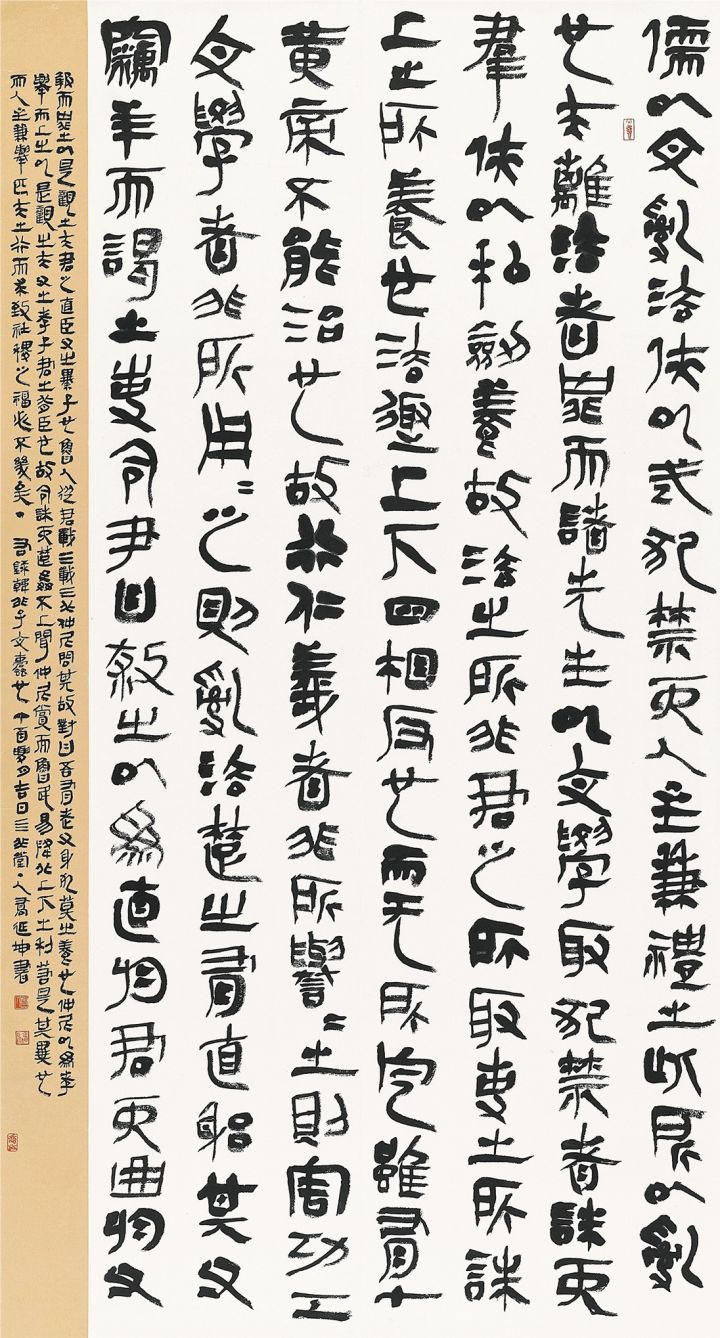 儒以文亂法俠以武犯禁而人主兼禮之此所以亂
也夫離法者罪而諸先生以文學取犯禁者誅而
羣俠以私劍養故法之所非君之所取吏之所誅
上之所養也法趣上下四相反也而无所定雖有十
黃帝不能治也故行仁義者非所譽〻之則害功工
文學者非所用〻之則亂法楚之有直躬其父
竊羊而謁之吏令尹曰殺之以為直於君而曲於父
報而罪之以是觀之夫君之直臣父之暴子也魯人從君戰三戰三北仲尼問其故對曰吾有老父身死莫之養也仲尼以為孝
舉而上之以是觀之夫父之孝子君之背臣也故令誅而楚姦不上聞仲尼賞而魯民易降北上下之利若是其異也
而人主兼舉匹夫之行而求致社稷之福必不幾矣 右錄韓非子五蠹也 月吉日三非堂人延坤書